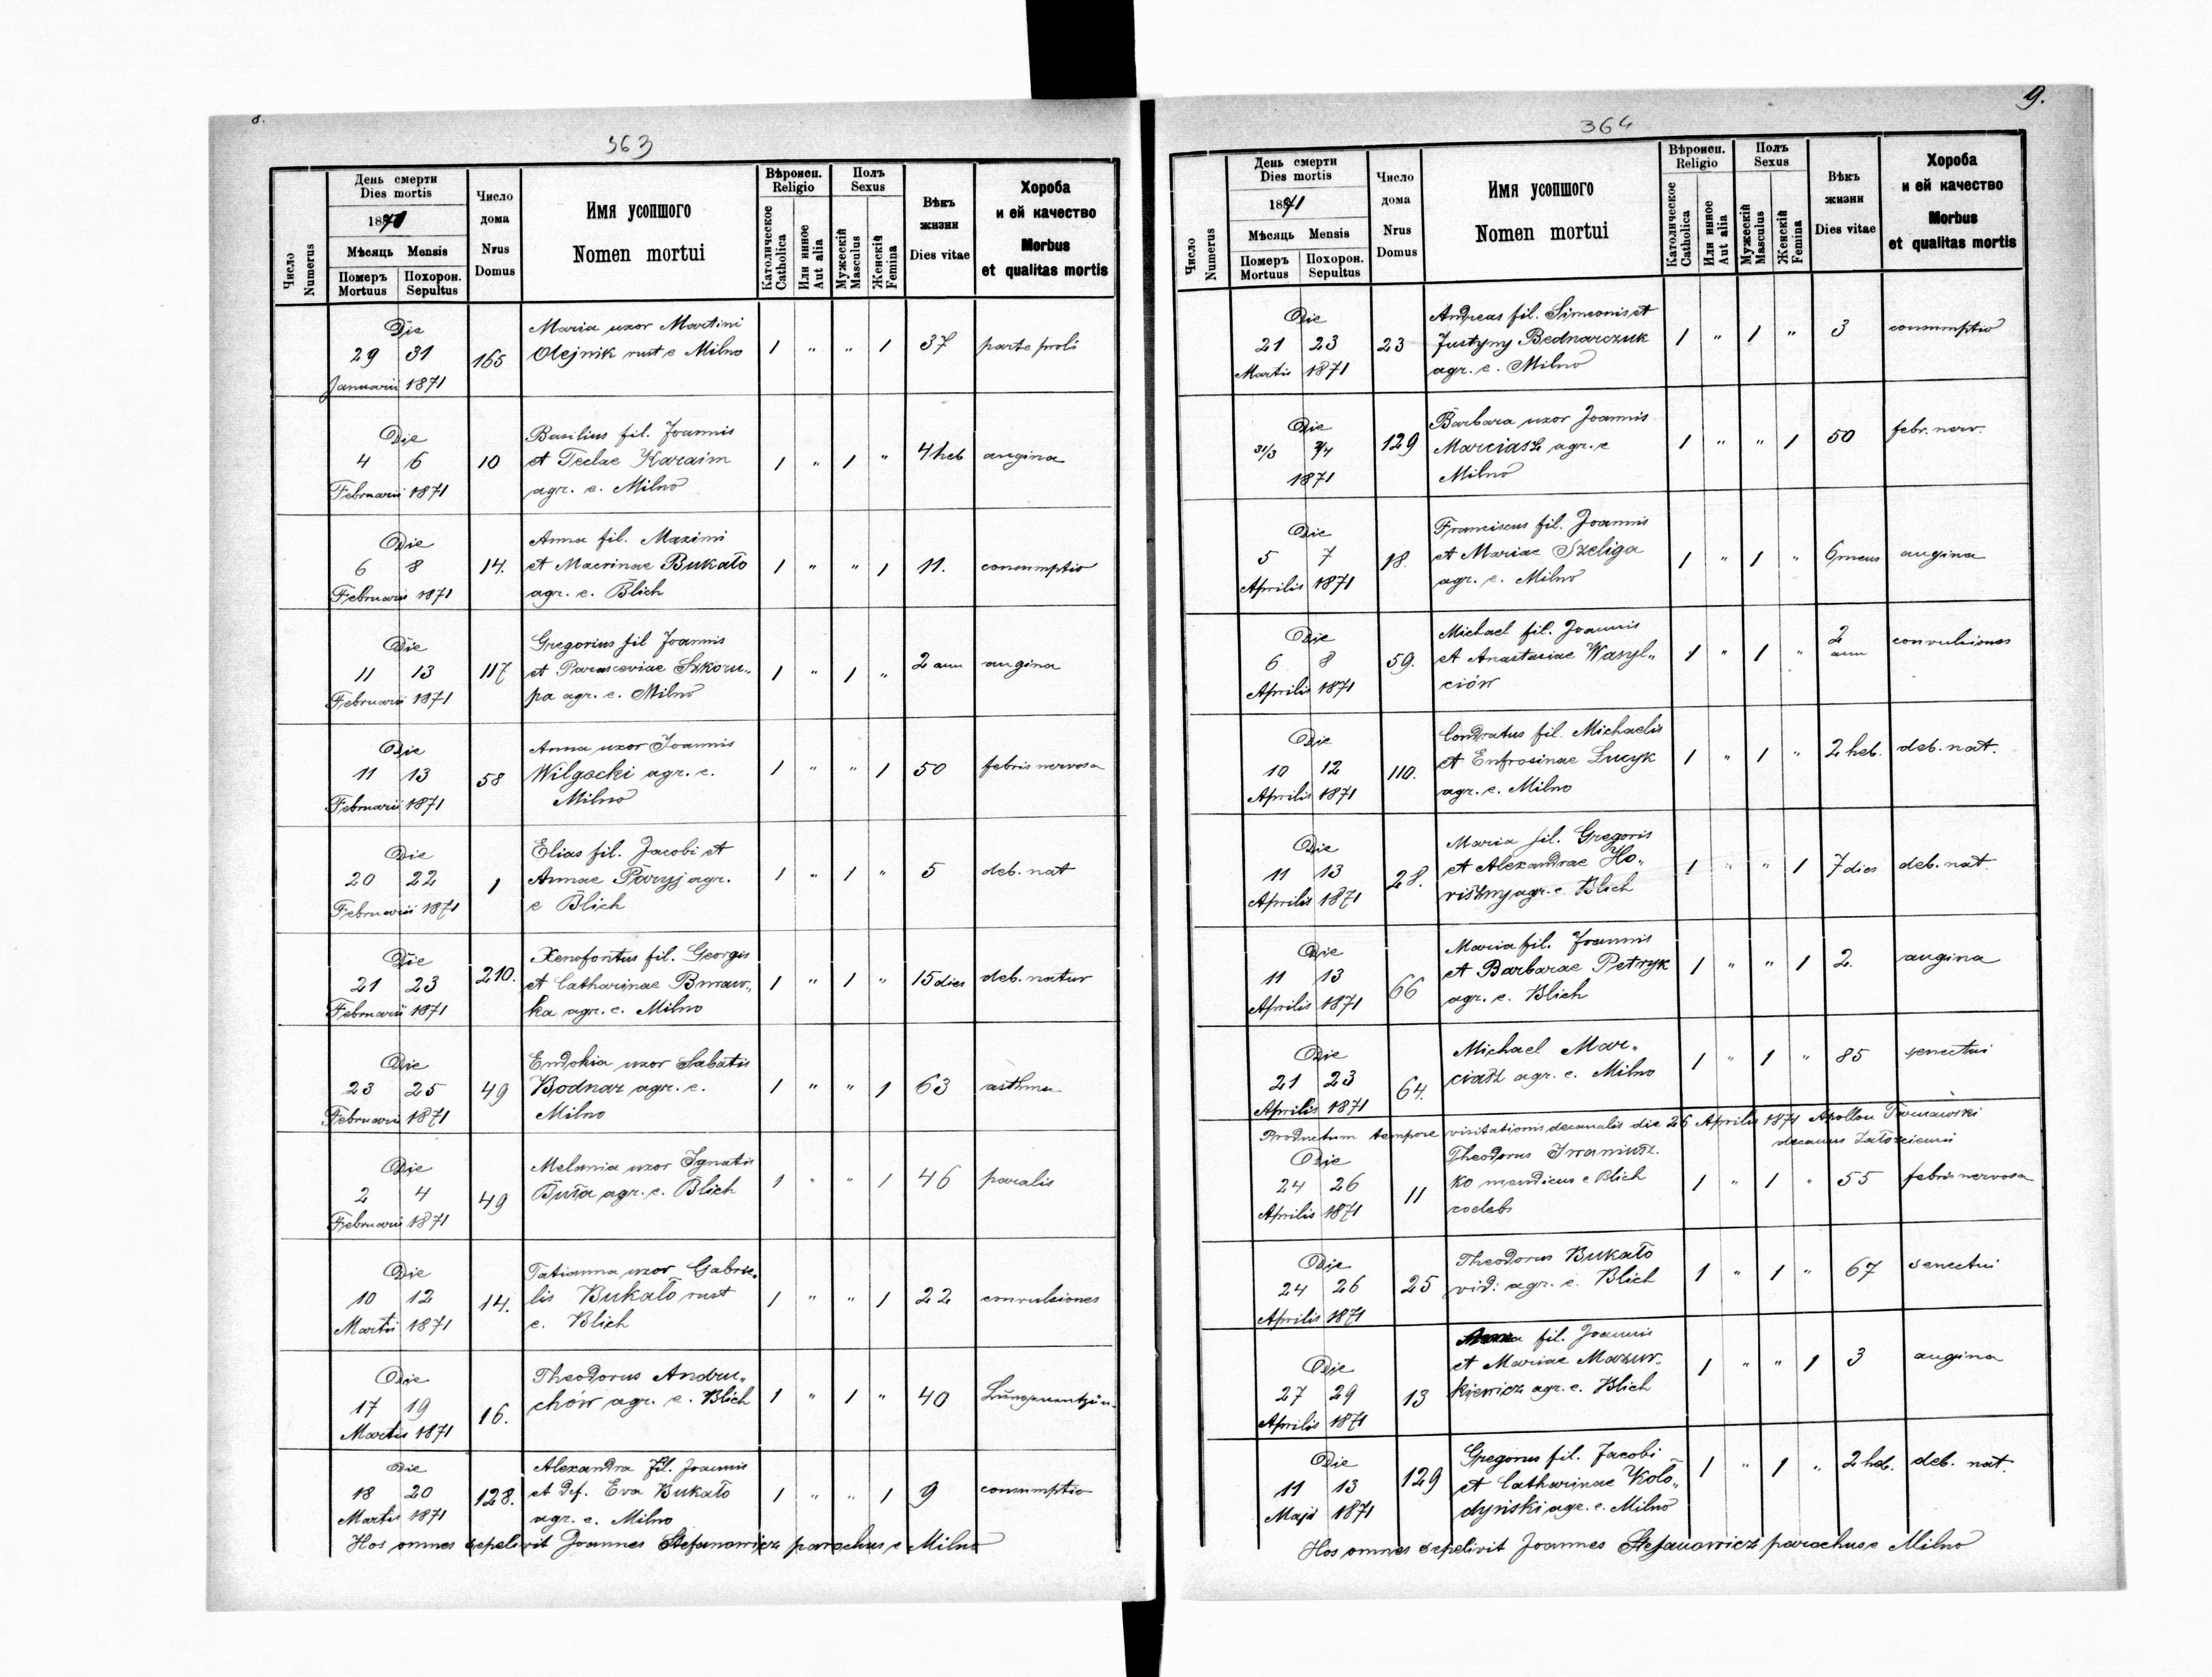 8.
363
Число
Numerus
День смерти
Dies mortis
1871
Мѣсяць Mensis
Померъ
Mortuus
Похорон.
Sepultus
Число
дома
Nrus
Domus
Имя усопшого
Nomen mortui
Вѣроисп.
Religio
Католическое
Catholica
Или инное
Aut alia
Полъ
Sexus
Мужескій
Masculus
Женскій
Femina
Вѣкъ
жизни
Dies vitae
Хороба
и ей качество
Morbus
et qualitas mortis
Die
29 31
Januarii 1871
165
Maria uxor Martini
Olejnik rust e Milno
1 " " 1 37 parte proli
Die
4 6
Februarii 1871
10
Basilius fil. Joannis
et Teclae Karaim
agr. e. Milno
1 " 1 " 4 heb angina
Die
6 8
Februarii 1871
14.
Anna fil. Maximi
et Macrinae Bukało
agr. e. Blich
1 " " 1 11. consumptio
Die
11 13
Februarii 1871
117
Gregorius fil Joannis
et Parasceviae Szkoru„
pa agr. e. Milno
1 " 1 " 2 ann angina
Die
11 13
Februarii 1871
58
Anna uxor Joannis
Wilgocki agr. e.
Milno
1 " " 1 50 febris nervosa
Die
20 22
Februarii 1871
1
Elias fil. Jacobi et
Annae Paryj agr.
e Blich
1 " 1 " 5 deb. nat
Die
21 23
Februarii 1871
210.
Xenofontus fil. Georgis
et Catharinae Buraw„
ka agr. e. Milno
1 " 1 " 15 dies deb. natur
Die
23 25
Februarii 1871
49
Eudokia uxor Sabatis
Bodnar agr. e.
Milno
1 " " 1 63 asthma
Die
2 4
Februarii 1871
49
Melania uxor Ignatis
Buła agr. e. Blich
1 " " 1 46 paralis
Die
10 12
Martii 1871
14.
Tatianna uxor Gabrie„
lis Bukało rust
e. Blich
1 " " 1 22 convulsiones
Die
17 19
Martis 1871
16.
Theodorus Andru„
chów agr. e. Blich
1 " 1 " 40
Die
18 20
Martis 1871
128.
Alexandra fil. Joannis
et def. Eva Bukało
agr. e. Milno
1 " " 1 9 consumptio
Hos omnes sepelivit Joannes Stefanowicz parochus e Milno
9.
364
Число
Numerus
День смерти
Dies mortis
1871
Мѣсяць Mensis
Померъ
Mortuus
Похорон.
Sepultus
Число
дома
Nrus
Domus
Имя усопшого
Nomen mortui
Вѣроисп.
Religio
Католическое
Catholica
Или инное
Aut alia
Полъ
Sexus
Мужескій
Masculus
Женскій
Femina
Вѣкъ
жизни
Dies vitae
Хороба
и ей качество
Morbus
et qualitas mortis
Die
21 23
Martis 1871
23
Andreas fil. Simeonis et
Justyny Bednarczuk
agr. e. Milno
1 " 1 " 3 consumptio
Die
31/3 2/4
1871
129
Barbara uxor Joannis
Marciasz agr. e
Milno
1 " " 1 50 febr. nerv.
Die
5 7
Aprilis 1871
18.
Franciscus fil. Joannis
et Mariae Szeliga
agr. e. Milno
1 " 1 " 6 mens angina
Die
6 8
Aprilis 1871
59.
Michael fil. Joannis
et Anastasiae Wasyl„
ciów
1 " 1 " 2 ann convulsiones
Die
10 12
Aprilis 1871
110.
Condratus fil. Michaelis
et Eufrosinae Lucyk
agr. e. Milno
1 " 1 " 2 heb. deb. nat.
Die
11 13
Aprilis 1871
28.
Maria fil. Gregoris
et Alexandrae Ho„
riszny agr. e Blich
1 " " 1 7 dies deb. nat.
Die
11 13
Aprilis 1871
66
Maria fil. Joannis
et Barbarae Petryk
agr. e. Blich
1 " " 1 2. angina
Die
21 23
Aprilis 1871
64.
Michael Mar„
ciasz agr. e. Milno
1 " 1 " 85 senectui
Productum tempore visitationis decanalis die 26 Aprilis 1871 Apollon Tarnawski
decanus
Die
24 26
Aprilis 1871
11
Theodorus Iwanisz.
ko mendicus e Blich
coelebs
1 " 1 " 55 febris nervosa
Die
24 26
Aprilis 1871
25
Theodorus Bukało
vid: agr. e. Blich
1 " 1 " 67 senectui
Die
27 29
Aprilis 1871
13
Anna fil. Joannis
et Mariae Mazur„
kiewicz agr. e. Blich
1 " " 1 3 angina
Die
11 13
Maji 1871
129
Gregorius fil. Jacobi
et Catharinae Koło„
dyński agr. e. Milno
1 " 1 " 2 heb. deb. nat.
Hos omnes sepelivit Joannes Stefanowicz parochus e Milno